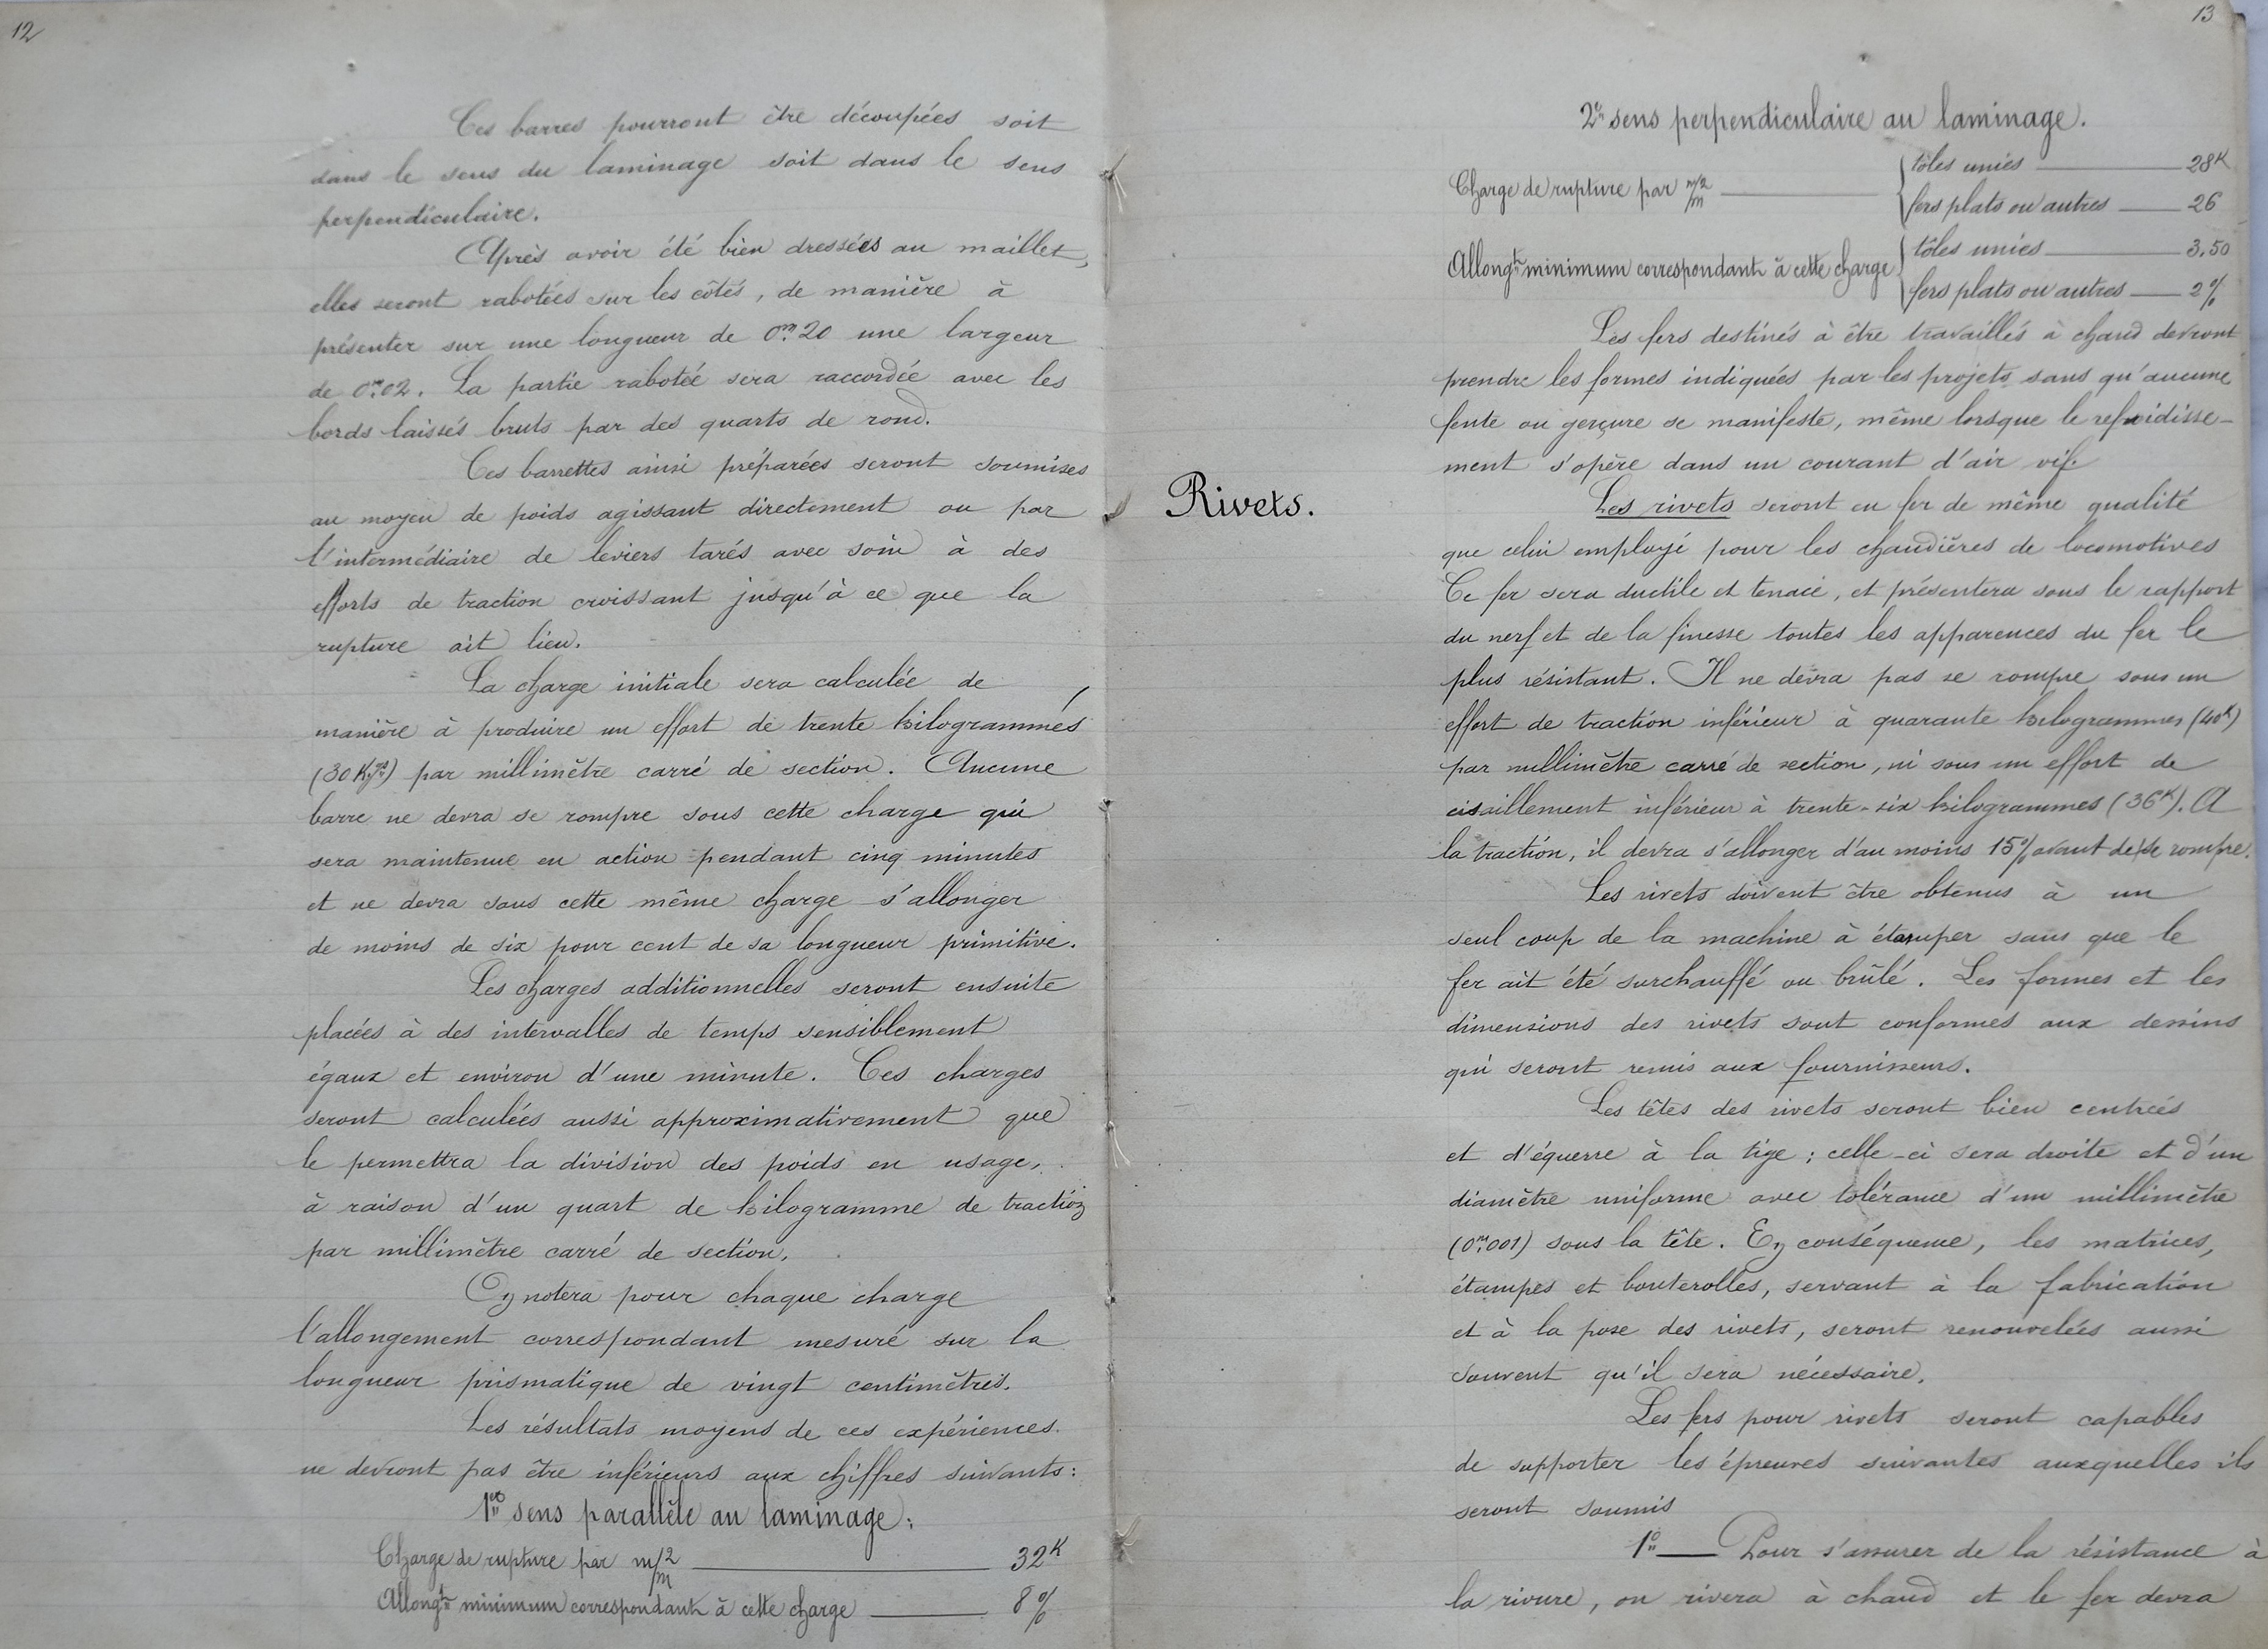 12
Ces barres pourront être découpées soit
dans le sens du laminage soit dans le sens
perpendiculaire.
Après avoir été bien dressées au maillet,
elles seront rabotées sur les côtés, de manière à
présenter sur une longueur de 0m20 une largeur
de 0m02. La partie rabotée sera raccordée avec les
bords laissés bruts par des quarts de rond.
Ces barrettes ainsi préparées seront soumises
au moyen de poids agissant directement ou par
l'intermédiaire de leviers tarés avec soin à des
efforts de traction croissant jusqu'à ce que la
rupture ait lieu.
La charge initiale sera calculée de
manière à produire un effort de trente kilogrammes
(30 Kgs) par millimètre carré de section. Aucune
barre ne devra se rompre sous cette charge qui
sera maintenue en action pendant cinq minutes
et ne devra sous cette même charge s'allonger
de moins de six pour cent de sa longueur primitive.
Les charges additionnelles seront ensuite
placées à des intervalles de temps sensiblement
égaux et environ d'une minute. Ces charges
seront calculées aussi approximativement que
le permettra la division des poids en usage,
à raison d'un quart de kilogramme de traction
par millimètre carré de section.
On notera pour chaque charge
l'allongement correspondant mesuré sur la
longueur prismatique de vingt centimètres.
Les résultats moyens de ces expériences
ne devront pas être inférieurs aux chiffres suivants:
1er sens parallèle au laminage:
Charge de rupture par m/m2 32K
Allongt minimum correspondant à cette charge 8%
13
2e sens perpendiculaire au laminage.
Charge de rupture par m/m2 { tôles unies 28K
fers plats ou autres 26
Allongt minimum correspondant à cette charge { tôles unies 3.50
fers plats ou autres 2%
Les fers destinés à être travaillés à chaud devront
prendre les formes indiquées par les projets sans qu'aucune
fente ou gerçure se manifeste, même lorsque le refroidisse-
ment s'opère dans un courant d'air vif.
Rivets.
Les rivets seront en fer de même qualité
que celui employé pour les chaudières de locomotives
Ce fer sera ductile et tenace, et présentera sous le rapport
du nerf et de la finesse toutes les apparences du fer le
plus résistant. Il ne devra pas se rompre sous un
effort de traction inférieur à quarante kilogrammes (40K)
par millimètre carré de section, ni sous un effort de
cisaillement inférieur à trente-six kilogrammes (36K). A
la traction, il devra s'allonger d'au moins 15% avant de se rompre.
Les rivets doivent être obtenus à un
seul coup de la machine à étamper sans que le
fer ait été surchauffé ou brûlé. Les formes et les
dimensions des rivets sont conformes aux dessins
qui seront remis aux fournisseurs.
Les têtes des rivets seront bien centrées
et d'équerre à la tige; celle-ci sera droite et d'un
diamètre uniforme avec tolérance d'un millimètre
(0m001) sous la tête. En conséquence, les matrices,
étampes et bouterolles, servant à la fabrication
et à la pose des rivets, seront renouvelées aussi
souvent qu'il sera nécessaire.
Les fers pour rivets seront capables
de supporter les épreuves suivantes auxquelles ils
seront soumis
1o — Pour s'assurer de la résistance à
la rivure, on rivera à chaud et le fer devra